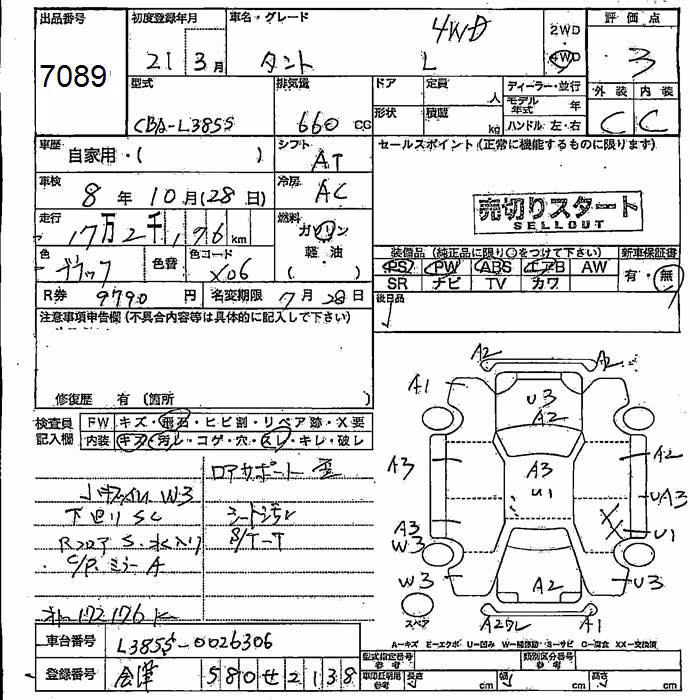 出品番号 7089
初度登録年月 21 3月
車名・グレード タント L 4WD
2WD
4WD
評価点 3
外装 内装
C C
型式 CBA-L385S
排気量 660 CC
ドア 定員 人
形状 積載 kg
ディーラー・並行
モデル年式 年
ハンドル 左・右
車歴 自家用・( )
シフト AT
セールスポイント(正常に機能するものに限ります)
売切りスタート
SELLOUT
車検 8年 10月(28日)
冷房 AC
走行 17万2千176 km
燃料 ガソリン
軽油
・( )
色 ブラック 色替 色コード X06
装備品(純正品に限り○をつけて下さい) 新車保証書
PS PW ABS エアB AW 有・無
SR ナビ TV カワ
R券 9790 円 名変期限 7月28日
後日品
注意事項申告欄(不具合内容等は具体的に記入して下さい)
修復歴 有(箇所 )
検査員記入欄
FW キズ・飛石・ヒビ割・リペア跡・X要
内装 キズ・汚レ・コゲ・穴・スレ・キレ・破レ
ロアサポート
W3
下廻りSC
シートシミ
Rフロア S.水入り
S/T-T
C/P.ミラーA
オドー172176K
A2 A2
A1
U3
A2
A3 A3 A2
U1 UA3
A3 XX U1
W3
W3 A2 U3
スペア A2ワレ A1
A-キズ E-エクボ U-凹み W-補修跡 S-サビ C-腐食 XX-交換済
車台番号 L385S-0026306
型式指定番号 参考 類別区分番号 参考
登録番号 会津 580せ2138
車印証明用 参考 長さ cm 幅 cm 高さ cm